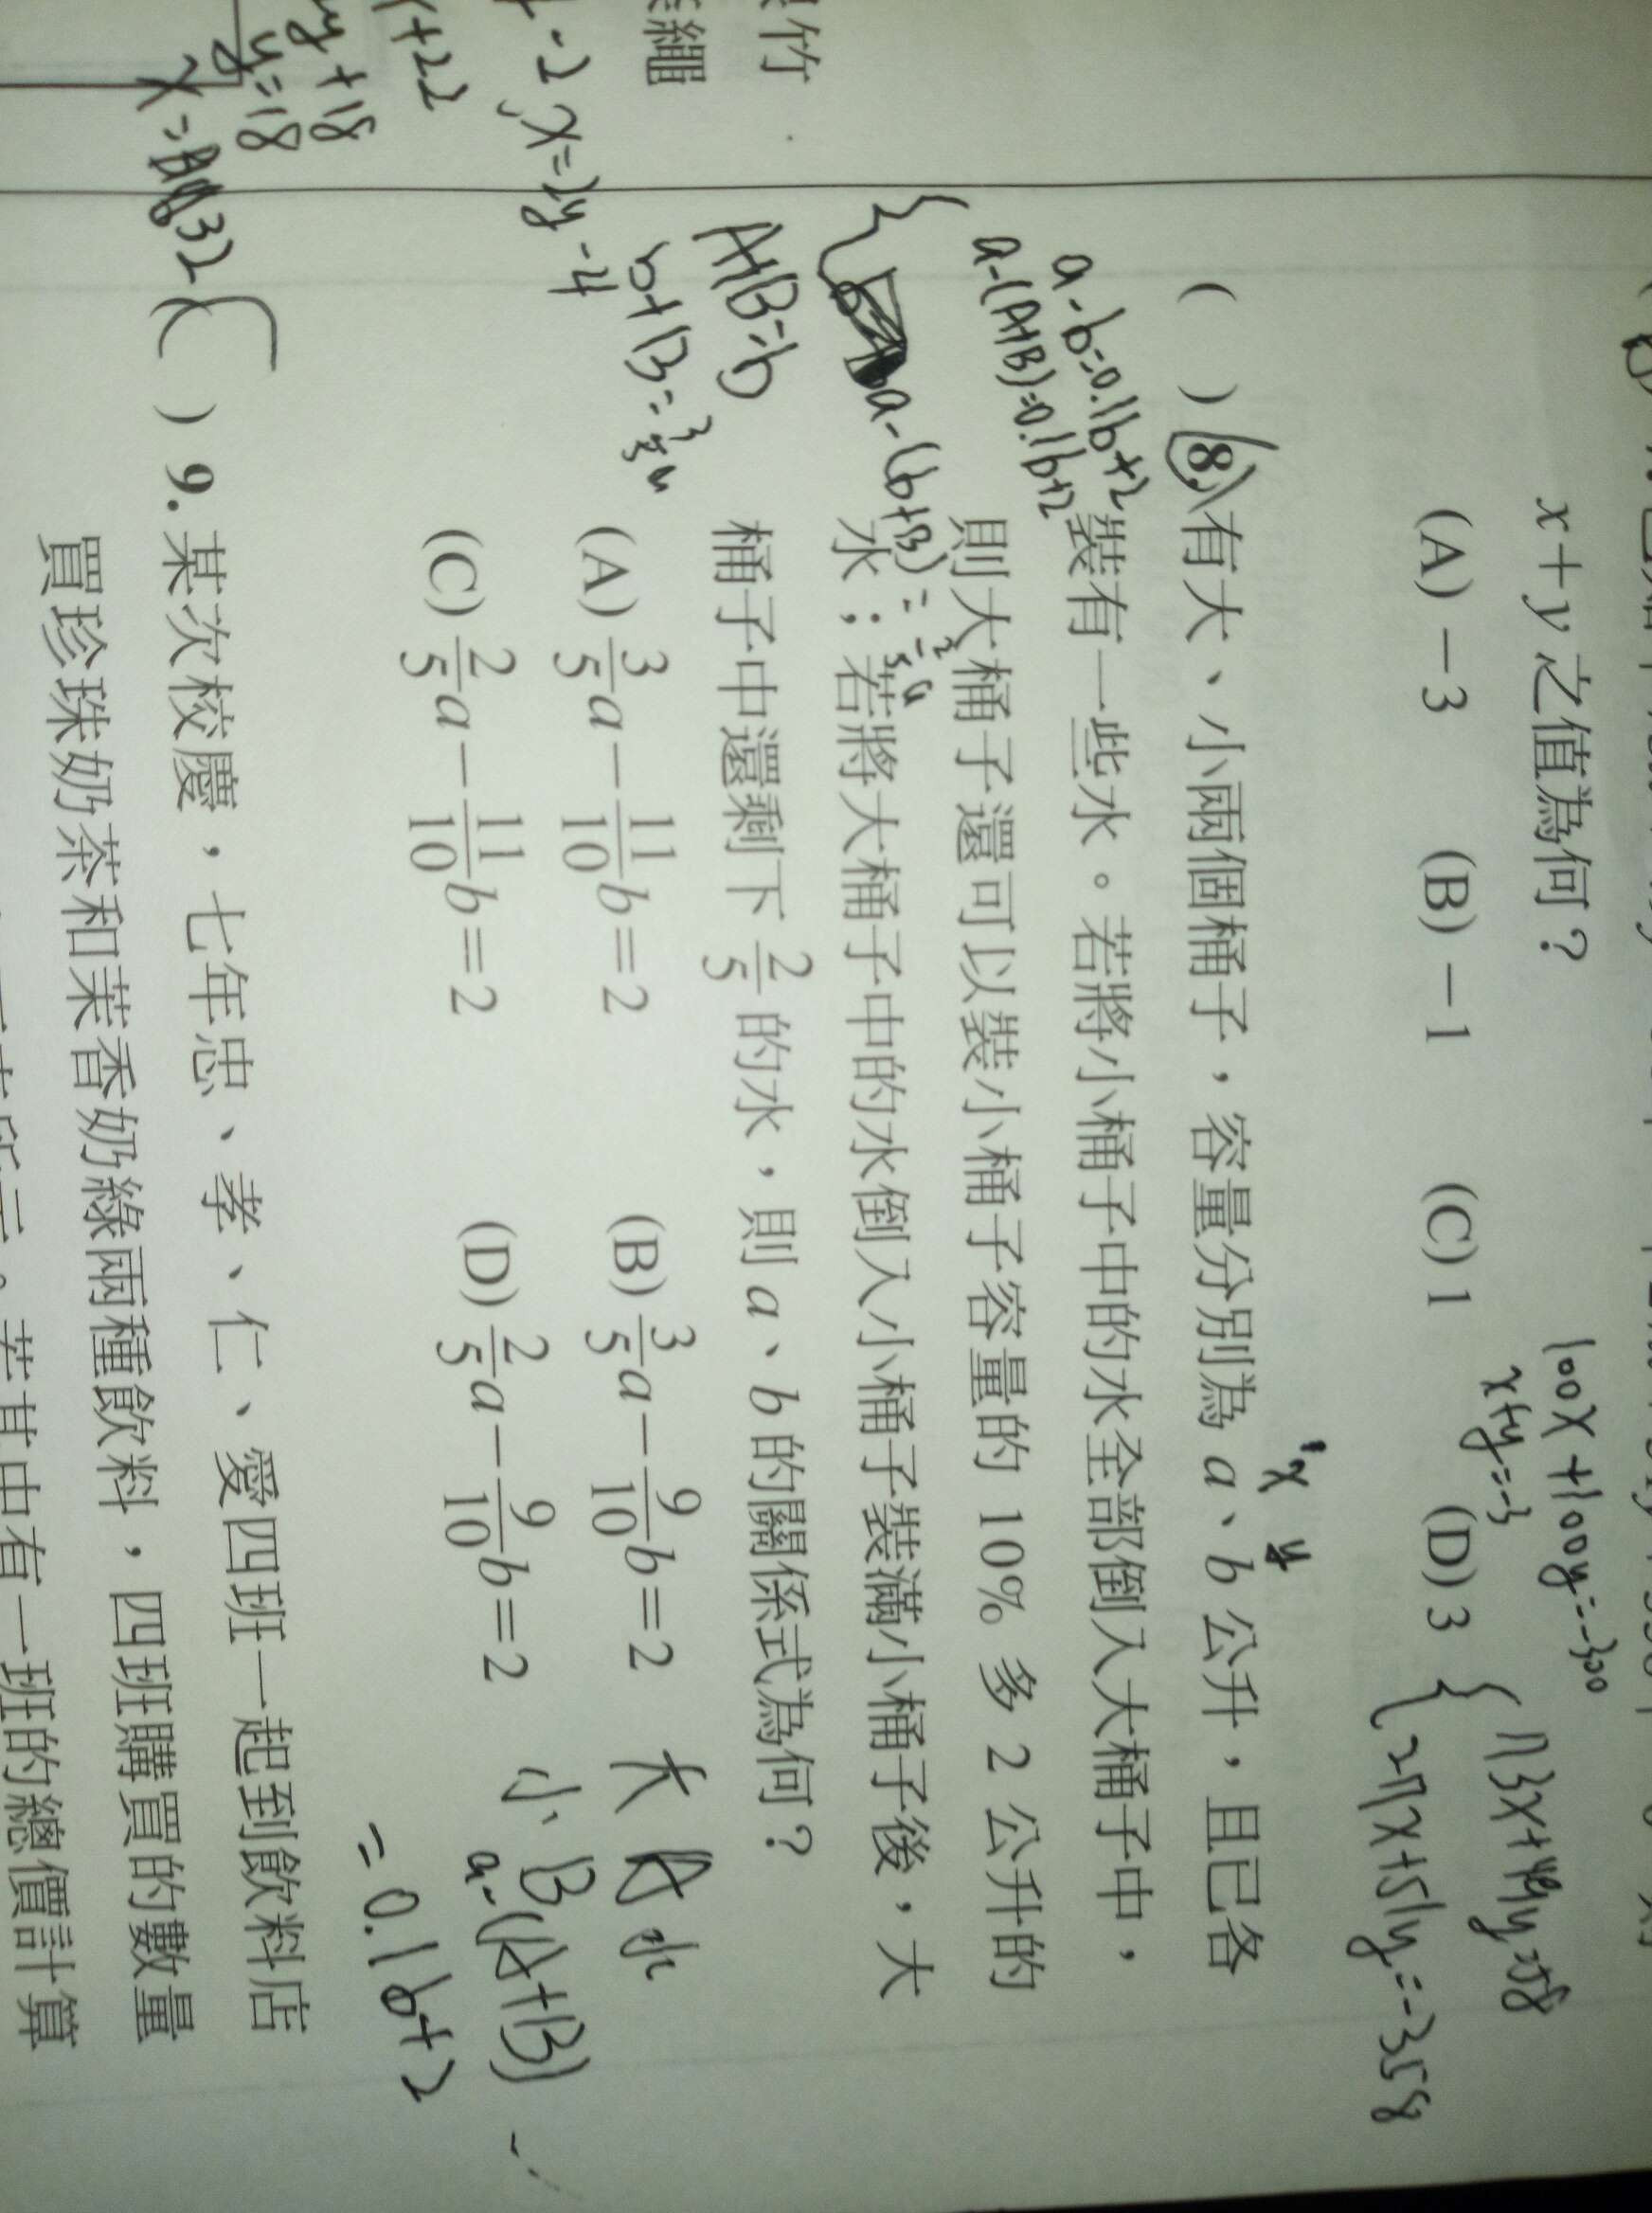 x+y 之值為何？
(A) －3 (B) －1 (C) 1 (D) 3
100x+100y=-300
x+y=-3
27x+51y=-358
( ) 8. 有大、小兩個桶子，容量分別為 a、b 公升，且已各
x y
裝有一些水。若將小桶子中的水全部倒入大桶子中，
則大桶子還可以裝小桶子容量的 10% 多 2 公升的
水；若將大桶子中的水倒入小桶子裝滿小桶子後，大
桶子中還剩下 2/5 的水，則 a、b 的關係式為何？
(A) 3/5 a－11/10 b=2 (B) 3/5 a－9/10 b=2
(C) 2/5 a－11/10 b=2 (D) 2/5 a－9/10 b=2
a-b=0.1b+2
a-(A+B)=0.1b+2
A+B=b
大 A 水
小 B
a-(A+B)
=0.1b+2
竹
繩
-2, x=2y-4
+22
y+18
y=18
32
( ) 9. 某次校慶，七年忠、孝、仁、愛四班一起到飲料店
買珍珠奶茶和茉香奶綠兩種飲料，四班購買的數量
。若其中有一班的總價計算